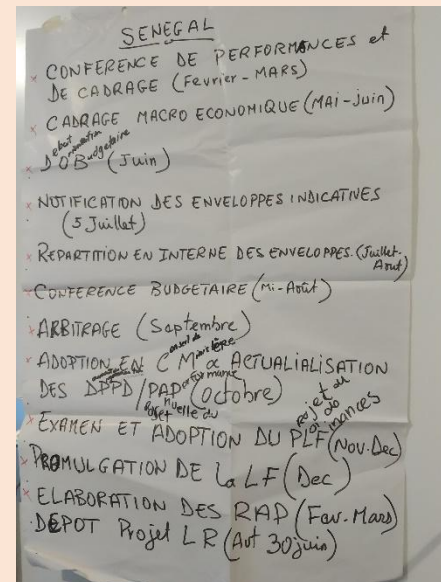 SENEGAL
CONFERENCE DE PERFORMANCES et
DE CADRAGE (Fevrier - MARS)
CADRAGE MACRO ECONOMIQUE (MAi - juin)
Debat Orientation Budgetaire
DOB (Juin)
NOTIFICATION DES ENVELOPPES INDICATIVES
(5 Juillet)
REPARTITION EN INTERNE DES ENVELOPPES. (Juillet-
Aout)
CONFERENCE BUDGETAIRE (Mi-Août)
ARBITRAGE (Septembre)
ADOPTION EN CM α ACTUALIALISATION
DES DPPD/PAP (octobre)
EXAMEN ET ADOPTION DU PLF (Nov-Dec)
PROMULGATION DE la LF (Dec)
ELABORATION DES RAP (Fev. Mars)
DEPOT Projet LR (Avt 30 juin)